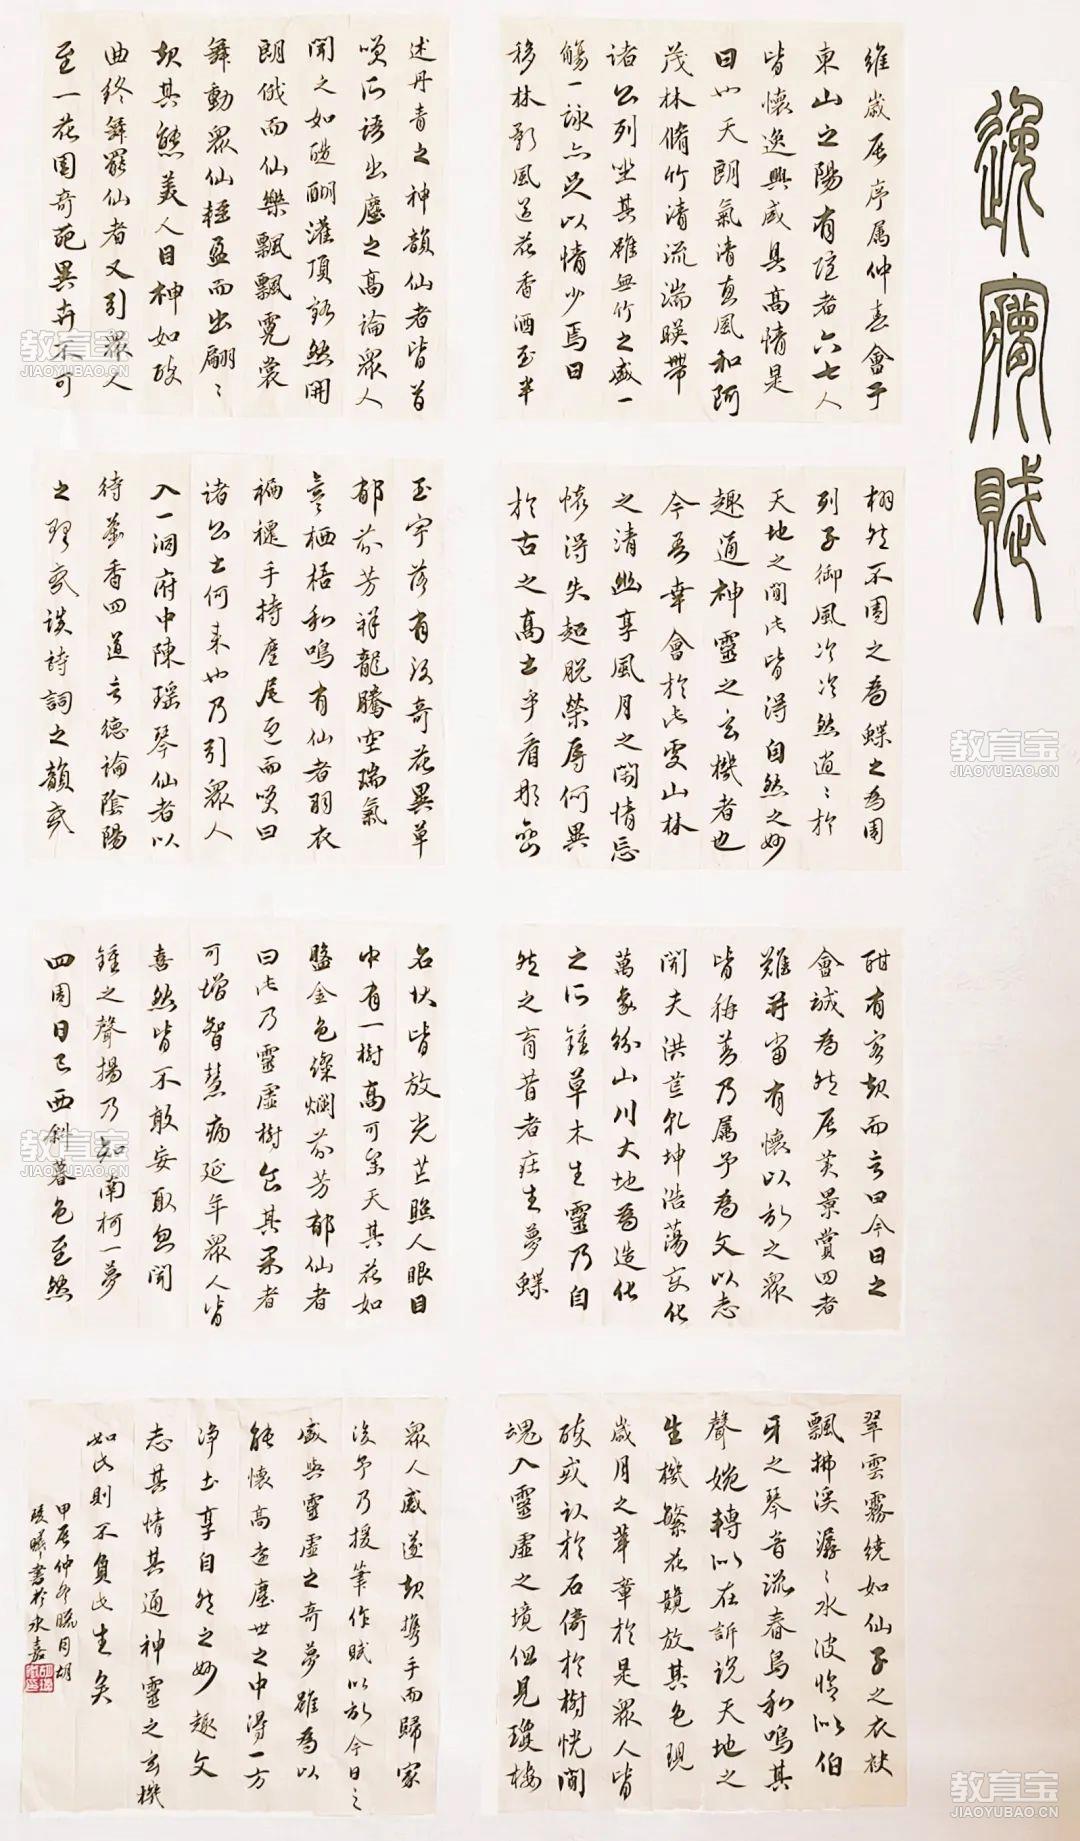 逸夢賦
維歲辰序属仲春會于
東山之陽有誼者六七人
皆懷逸興咸具高情是
日也天朗氣清惠風和阿
茂林脩竹清流湍暎帶
諸公列坐其雖無竹之盛一
觴一詠亦足以情少焉日
移林影風送花香酒至半
栩然不周之為蝶之為周
列子御風冷冷然逍逍於
天地之間此皆得自然之妙
趣通神靈之玄機者也
今吾幸會於此雯山林
之清幽享風月之閑情忘
懷得失超脱榮辱何異
於古之高士乎看那巒
酣有客起而言曰今日之
會誠為然辰美景賞四者
難并當有懷以放之眾
皆稱善乃属予為文以志
聞夫洪荒乾坤浩蕩变化
萬象紛山川大地為造化
之所鍾草木生靈乃自
然之育昔者莊生夢蝶
翠雲霧繞如仙子之衣袂
飄拂溪潺潺水波憶似伯
牙之琴音流春鳥和鳴其
聲婉轉似在訴說天地之
生機繁花競放其色現
歲月之華章於是眾人皆
醉或臥於石倚於樹恍間
魂入靈虛之境但見瓊樓
述丹青之神韻仙者皆首
嘆所語出塵之高論眾人
聞之如醍醐灌頂豁然開
朗俄而仙樂飄飄霓裳
舞動眾仙輕盈而出翩翩
起其態美人目神如改
曲終舞罷仙者又引眾人
至一花園奇葩異卉不可
玉宇落有致奇花異草
郁芬芳祥龍騰空瑞氣
鸞栖梧和鳴有仙者羽衣
褊襹手持麈尾迎而嘆曰
諸公士何来也乃引眾人
入一洞府中陳瑶琴仙者以
待茗香四道言德論陰陽
之理或談詩詞之韻或
名状皆放光芒照人眼目
中有一樹高可參天其花如
盤金色燦爛芬芳郁仙者
曰此乃靈虛樹食其果者
可增智慧病延年眾人皆
喜然皆不敢妄取忽聞
鍾之聲揚乃知南柯一夢
四周日已西斜暮色至然
眾人感遂起携手而歸家
後予乃援筆作賦以放今日之
盛與靈虛之奇夢雖為以
能懷高遠塵世之中得一方
净土享自然之妙趣文
志其情其通神靈之玄機
如此則不負此生矣
甲辰仲冬曉月胡
瑗曦書於永嘉
教育宝
JIAOYUBAO.CN
教育宝
JIAOYUBAO.CN
教育宝
JIAOYUBAO.CN
教育宝
JIAOYUBAO.CN